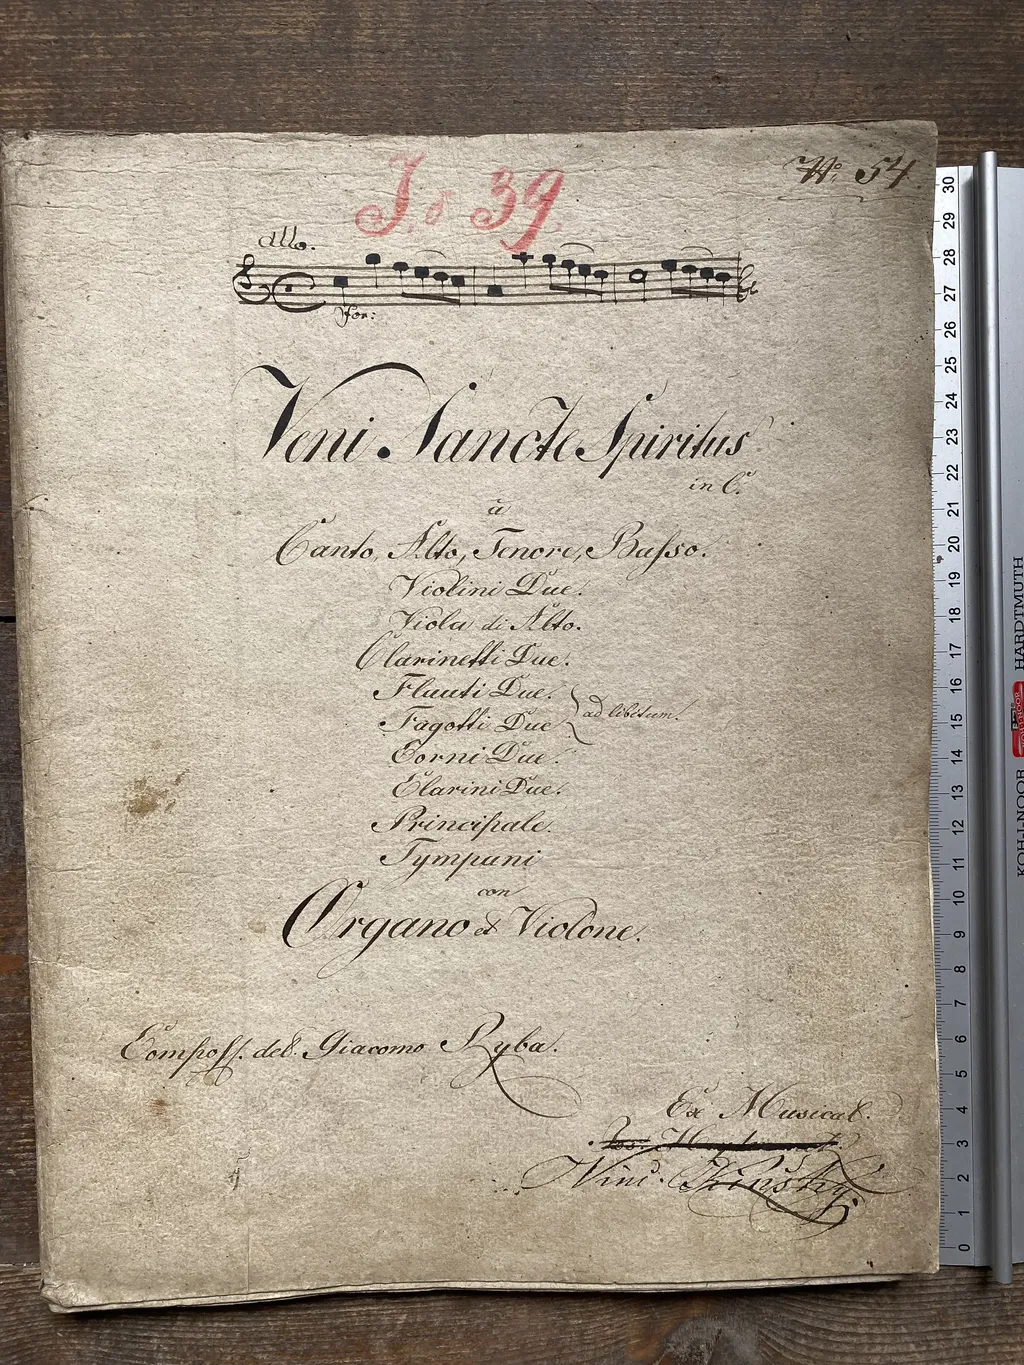 No. 54
J. d 39.
allo.
for:
Veni Sancte Spiritus
in C.
à
Canto, Alto, Tenore, Basso.
Violini Due.
Viola di Alto.
Clarinetti Due.
Flauti Due.
Fagotti Due
ad libitum.
Corni Due.
Clarini Due.
Principale.
Tympani
con
Organo et Violone.
Composs. del. Giacomo Ryba.
Ex Musical.
30
29
28
27
26
25
24
23
22
21
20
19
18
17
16
15
14
13
12
11
10
9
8
7
6
5
4
3
2
1
0
KOH-I-NOOR HARDTMUTH